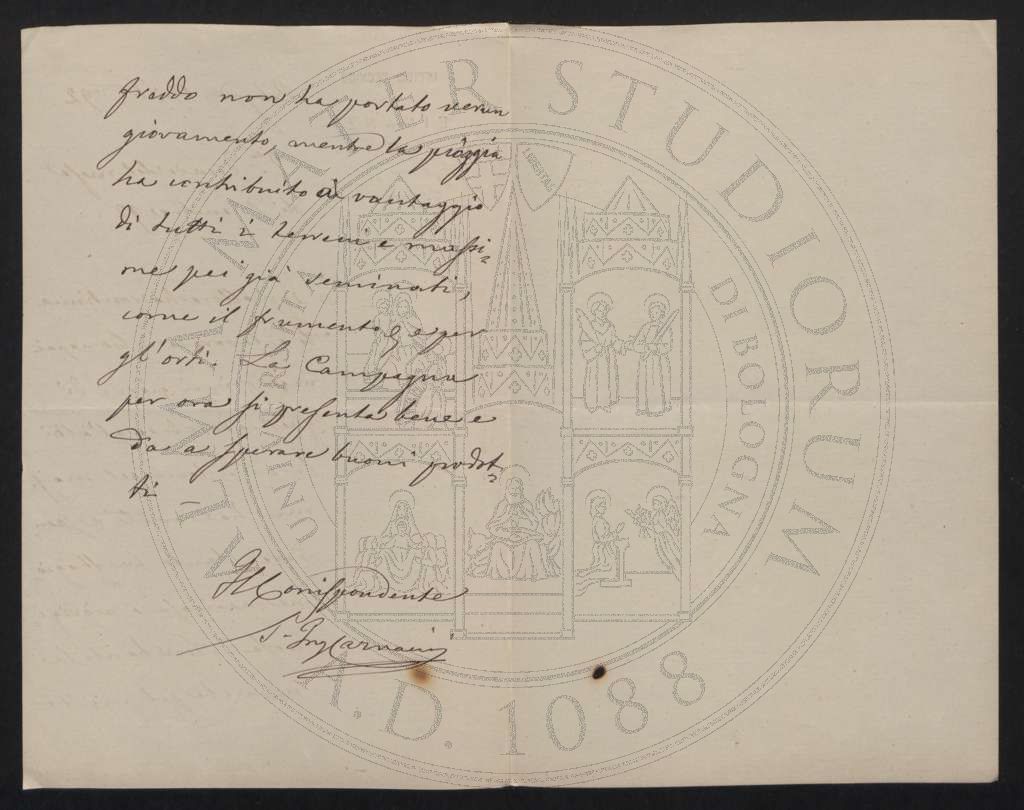 freddo non ha portato verun
giovamento, mentre la pioggia
ha contribuito a vantaggio
di tutti i terreni e massi-
me pei già seminati,
come il frumento, e per
gl'orti. La Campagna
per ora si presenta bene e
da a sperare buoni prodot-
ti —
Il Corrispondente
ALMA MATER STUDIORUM
UNIVERSITÀ DI BOLOGNA
LIBERTAS
A.D. 1088